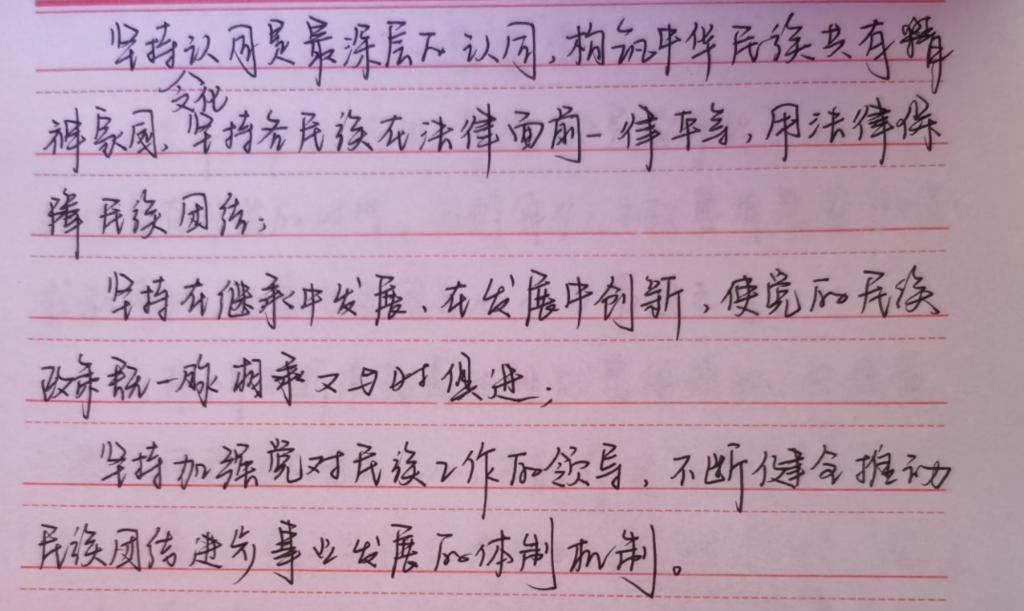 坚持文化认同是最深层的认同，构筑中华民族共有精
神家园、坚持各民族在法律面前一律平等，用法律保
障民族团结；
坚持在继承中发展、在发展中创新，使党的民族
政策既一脉相承又与时俱进；
坚持加强党对民族工作的领导，不断健全推动
民族团结进步事业发展的体制机制。